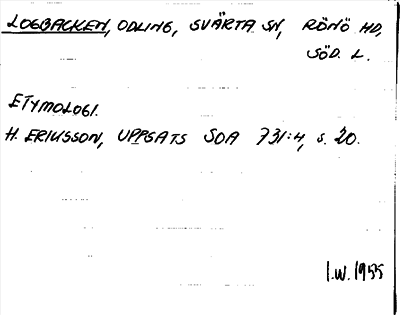 LOGBACKEN, ODLING, SVÄRTA SN, RÖNÖ HD,
SÖD. L.
ETYMOLOGI.
H. ERIKSSON, UPPSATS SOA 731:4, s. 20.
I.W. 1955